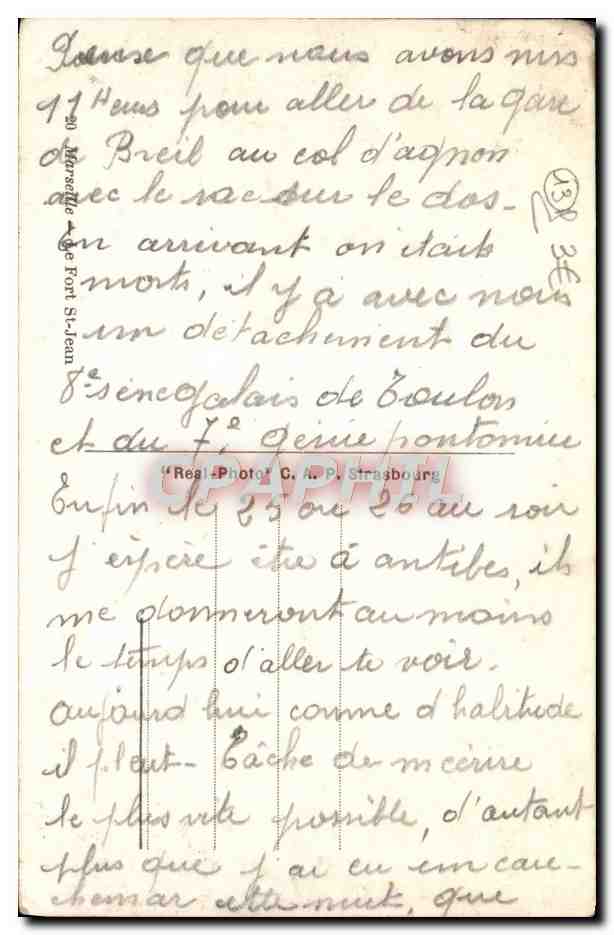 Pense que nous avons mis
11 Heures pour aller de la gare
de Breil au col d'agnon
avec le sac sur le dos-
En arrivant on était
morts, il y a avec nous
un détachement du
8e sénégalais de Toulon
et du 7e génie pontonnier
Enfin le 25 ou 26 au soir
j'éspère être à antibes, ils
me donneront au moins
le temps d'aller te voir.
aujourd hui comme d habitude
il pleut- Tâche de m'écrire
le plus vite possible, d'autant
plus que j'ai eu un cau-
chemar cette nuit, que
20 Marseille - Le Fort St-Jean
"Réal-Photo" C. A. P. Strasbourg
CPAPHIL
13
3€